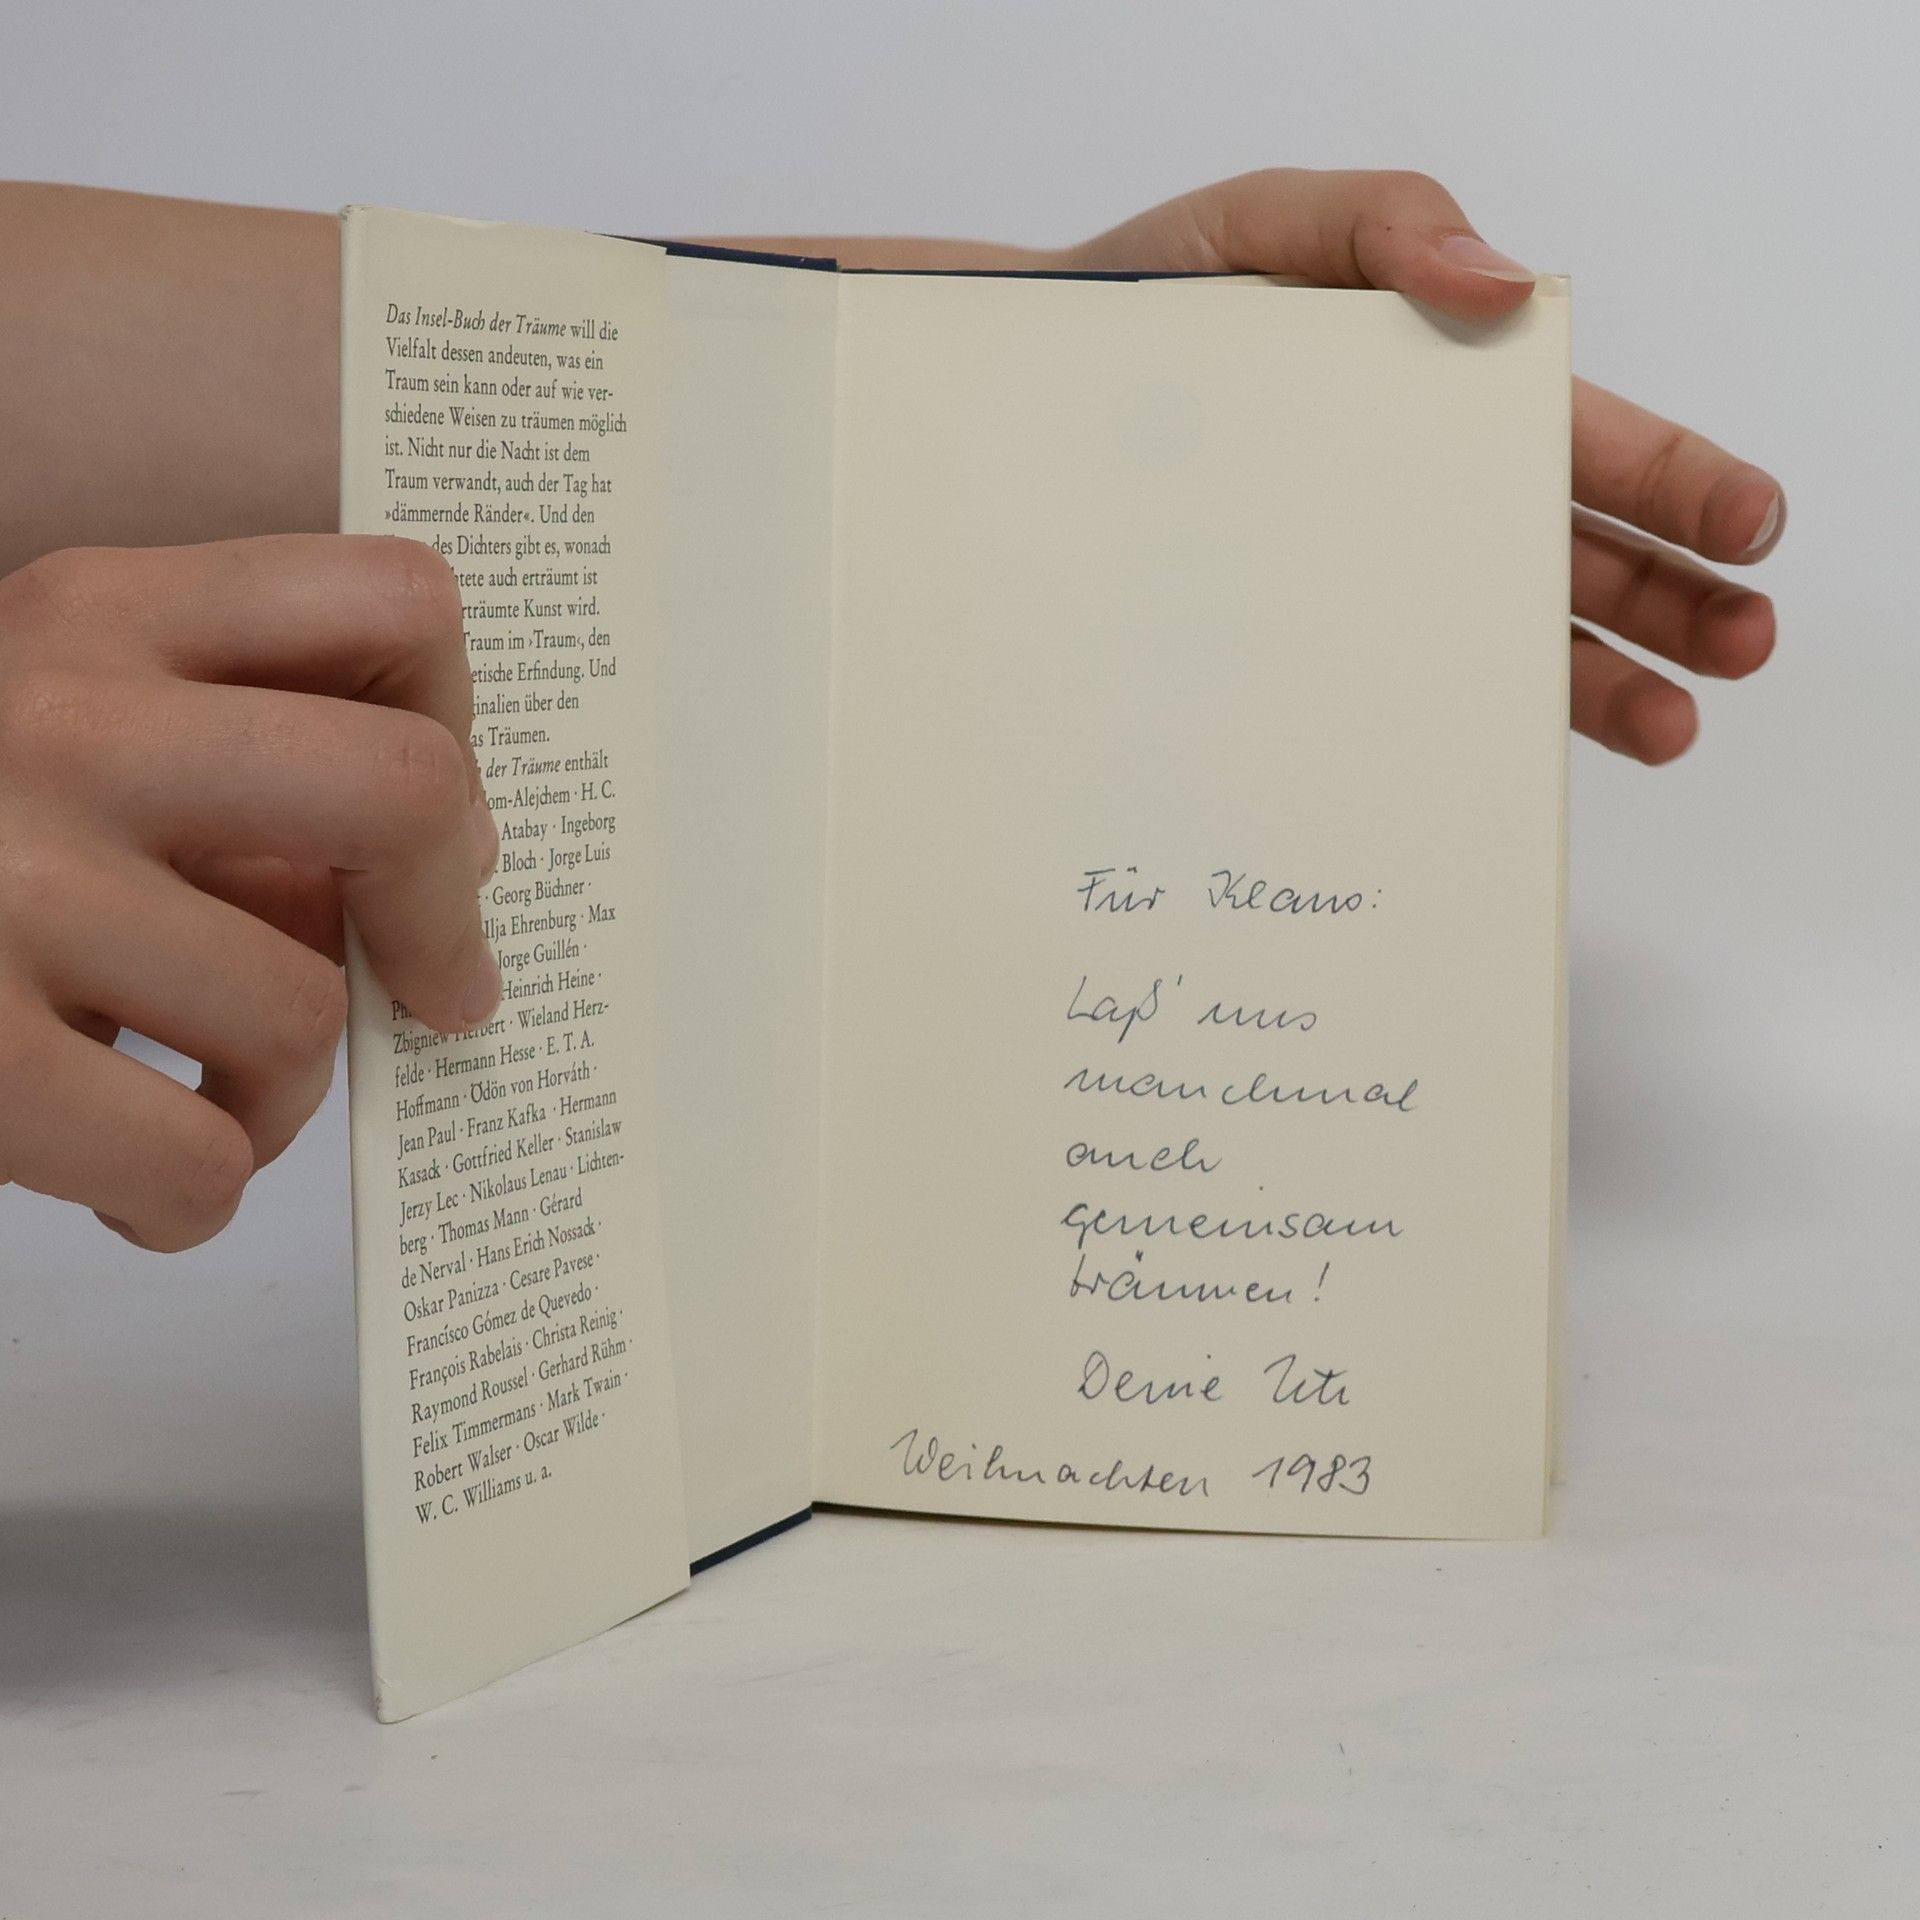 Das Insel-Buch der Träume will die
Vielfalt dessen andeuten, was ein
Traum sein kann oder auf wie ver-
schiedene Weisen zu träumen möglich
ist. Nicht nur die Nacht ist dem
Traum verwandt, auch der Tag hat
»dämmernde Ränder«. Und den
des Dichters gibt es, wonach
auch erträumt ist
Kunst wird.
Traum im ›Traum‹, den
Erfindung. Und
über den
Träumen.
der Träume enthält
H. C.
Atabay · Ingeborg
Bloch · Jorge Luis
· Georg Büchner ·
Ilja Ehrenburg · Max
Jorge Guillén ·
Heinrich Heine ·
Zbigniew Herbert · Wieland Herz-
felde · Hermann Hesse · E. T. A.
Hoffmann · Ödön von Horváth ·
Jean Paul · Franz Kafka · Hermann
Kasack · Gottfried Keller · Stanislaw
Jerzy Lec · Nikolaus Lenau · Lichten-
berg · Thomas Mann · Gérard
de Nerval · Hans Erich Nossack ·
Oskar Panizza · Cesare Pavese ·
Francisco Gómez de Quevedo ·
François Rabelais · Christa Reinig ·
Raymond Roussel · Gerhard Rühm ·
Felix Timmermans · Mark Twain ·
Robert Walser · Oscar Wilde ·
W. C. Williams u. a.
Für Klaus:
Laß' uns
manchmal
auch
gemeinsam
träumen!
Deine Ute
Weihnachten 1983